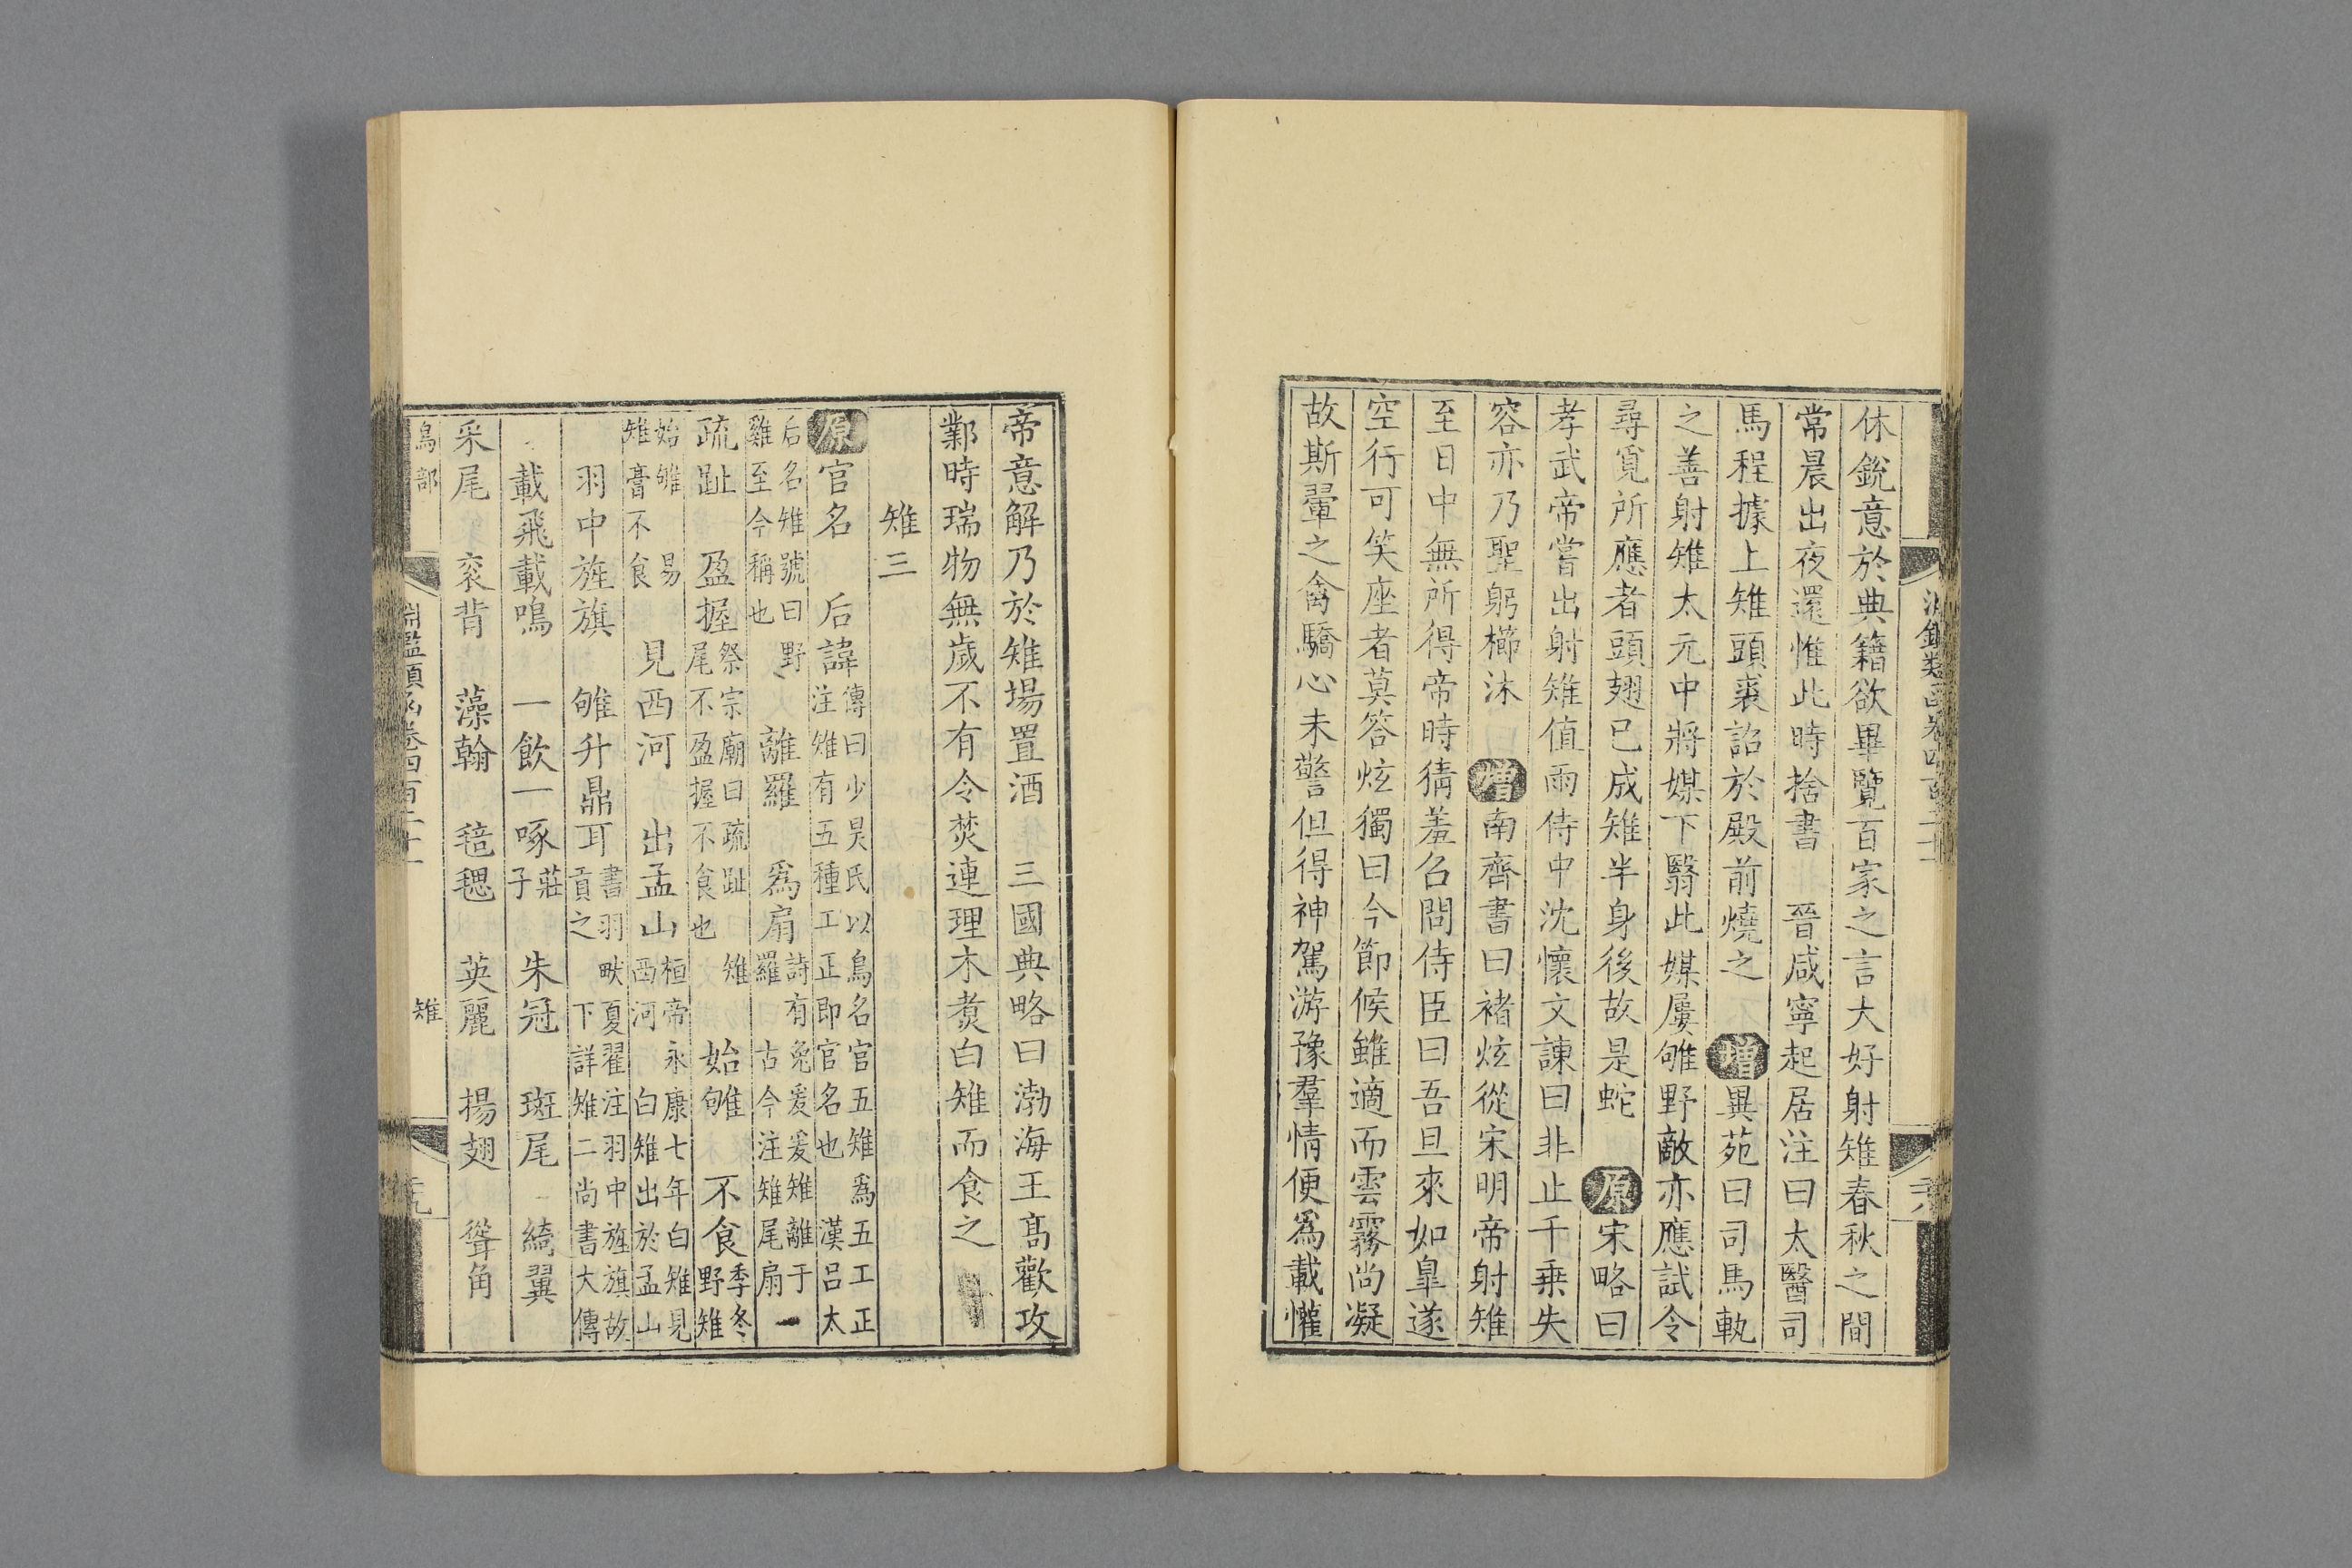 休銳意於典籍欲畢覽百家之言大好射雉春秋之間
常晨出夜還惟此時捨書　晉咸寧起居注曰太醫司
馬程據上雉頭裘詔於殿前燒之　增異苑曰司馬軌
之善射雉太元中將媒下翳此媒屢雊野敵亦應試令
尋覓所應者頭翅已成雉半身後故是蛇　原宋略曰
孝武帝嘗出射雉值雨侍中沈懷文諫曰非止千乗失
容亦乃聖躬櫛沐　增南齊書曰褚炫從宋明帝射雉
至日中無所得帝時猜羞召問侍臣曰吾旦來如臯遂
空行可笑座者莫答炫獨曰今節候雖適而雲霧尚凝
故斯翬之禽驕心未警但得神駕游豫羣情便爲載懽
帝意解乃於雉場置酒　三國典略曰渤海王高歡攻
鄴時瑞物無歲不有令焚連理木煑白雉而食之
雉三
原官名　后諱傳曰少昊氏以鳥名官五雉爲五工正注雉有五種工正即官名也　漢呂太
后名雉號曰野雞至今稱也　離羅　爲扇詩有兔爰爰雉離于羅　古今注雉尾扇一
疏趾　盈握祭宗廟曰疏趾雉尾不盈握不食也　始雊　不食季冬野雉
始雊易雉膏不食　見西河　出孟山桓帝永康七年白雉見西河　白雉出於孟山
羽中旌旗　雊升鼎耳書羽畎夏翟注羽中旌旗故貢之　下詳雉二尚書大傳
載飛載鳴　一飲一啄莊子　朱冠　斑尾　綺翼
采尾　衮背　藻翰　毰毸　英麗　揚翅　聳角
鳥部　淵鑑類函卷四百二十一　雉